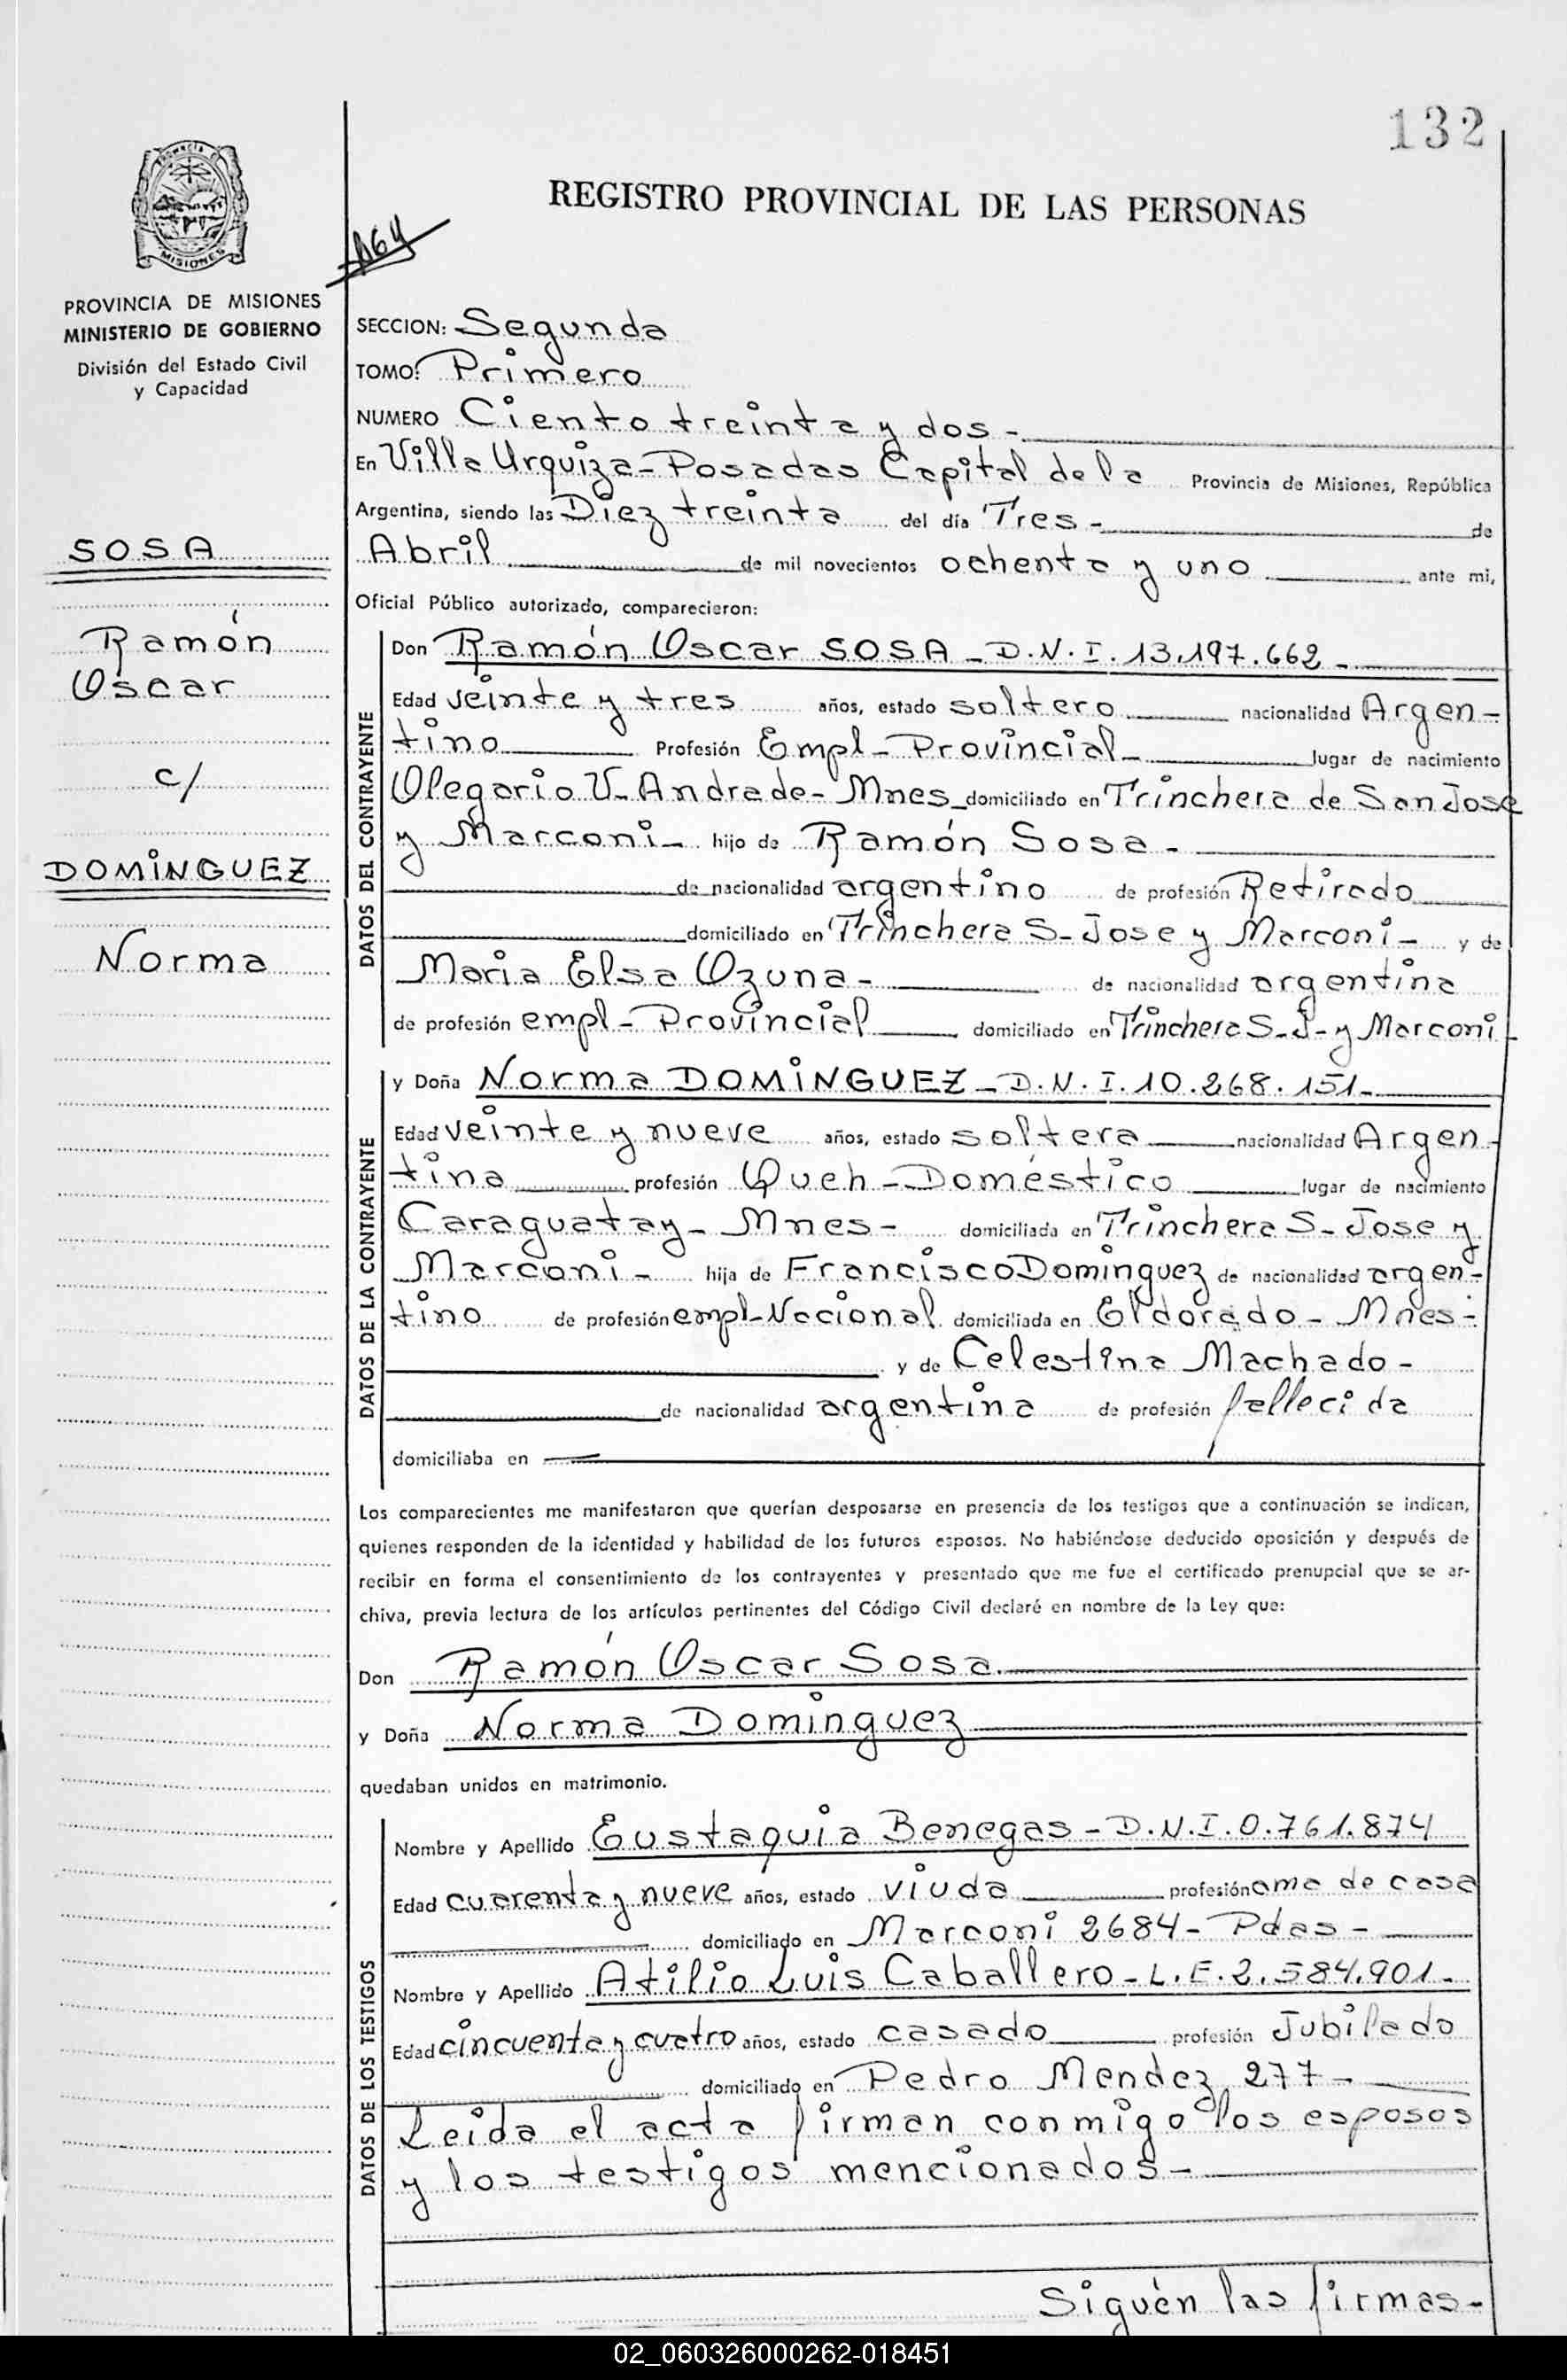 132
REGISTRO PROVINCIAL DE LAS PERSONAS
MISIONES
PROVINCIA DE MISIONES
MINISTERIO DE GOBIERNO
División del Estado Civil
y Capacidad
SOSA
Ramón
Oscar
c/
DOMINGUEZ
Norma
SECCION: Segunda
TOMO: Primero
NUMERO Ciento treinta y dos -
En Villa Urquiza - Posadas Capital de la Provincia de Misiones, República
Argentina, siendo las Diez treinta del día Tres - de
Abril de mil novecientos ochenta y uno ante mi,
Oficial Público autorizado, comparecieron:
DATOS DEL CONTRAYENTE
Don Ramón Oscar SOSA - D.N.I. 13.197.662 -
Edad veinte y tres años, estado soltero nacionalidad Argen-
tino Profesión Empl - Provincial - lugar de nacimiento
Olegario V. Andrade - Mnes - domiciliado en Trinchera de San Jose
y Marconi - hijo de Ramón Sosa -
de nacionalidad argentino de profesión Retirado
domiciliado en Trinchera S- Jose y Marconi - y de
Maria Elsa Ozuna - de nacionalidad argentina
de profesión empl - Provincial domiciliado en Trinchera S- J- y Marconi
DATOS DE LA CONTRAYENTE
y Doña Norma DOMINGUEZ - D.N.I. 10.268.151 -
Edad veinte y nueve años, estado soltera nacionalidad Argen-
tina profesión Queh - Doméstico lugar de nacimiento
Caraguatay - Mnes - domiciliada en Trinchera S- Jose y
Marconi - hija de Francisco Dominguez de nacionalidad argen-
tino de profesión empl - Nacional domiciliada en Eldorado - Mnes -
y de Celestina Machado -
de nacionalidad argentina de profesión fallecida
domiciliaba en
Los comparecientes me manifestaron que querían desposarse en presencia de los testigos que a continuación se indican,
quienes responden de la identidad y habilidad de los futuros esposos. No habiéndose deducido oposición y después de
recibir en forma el consentimiento de los contrayentes y presentado que me fue el certificado prenupcial que se ar-
chiva, previa lectura de los artículos pertinentes del Código Civil declaré en nombre de la Ley que:
Don Ramón Oscar Sosa
y Doña Norma Dominguez
quedaban unidos en matrimonio.
DATOS DE LOS TESTIGOS
Nombre y Apellido Eustaquia Benegas - D.N.I. 0.761.874
Edad cuarenta y nueve años, estado viuda profesión ama de casa
domiciliado en Marconi 2684 - Pdas -
Nombre y Apellido Atilio Luis Caballero - L.E. 2.584.901 -
Edad cincuenta y cuatro años, estado casado profesión Jubilado
domiciliado en Pedro Mendez 277 -
Leida el acta firman conmigo los esposos
y los testigos mencionados -
Siguén las firmas -
02_060326000262-018451